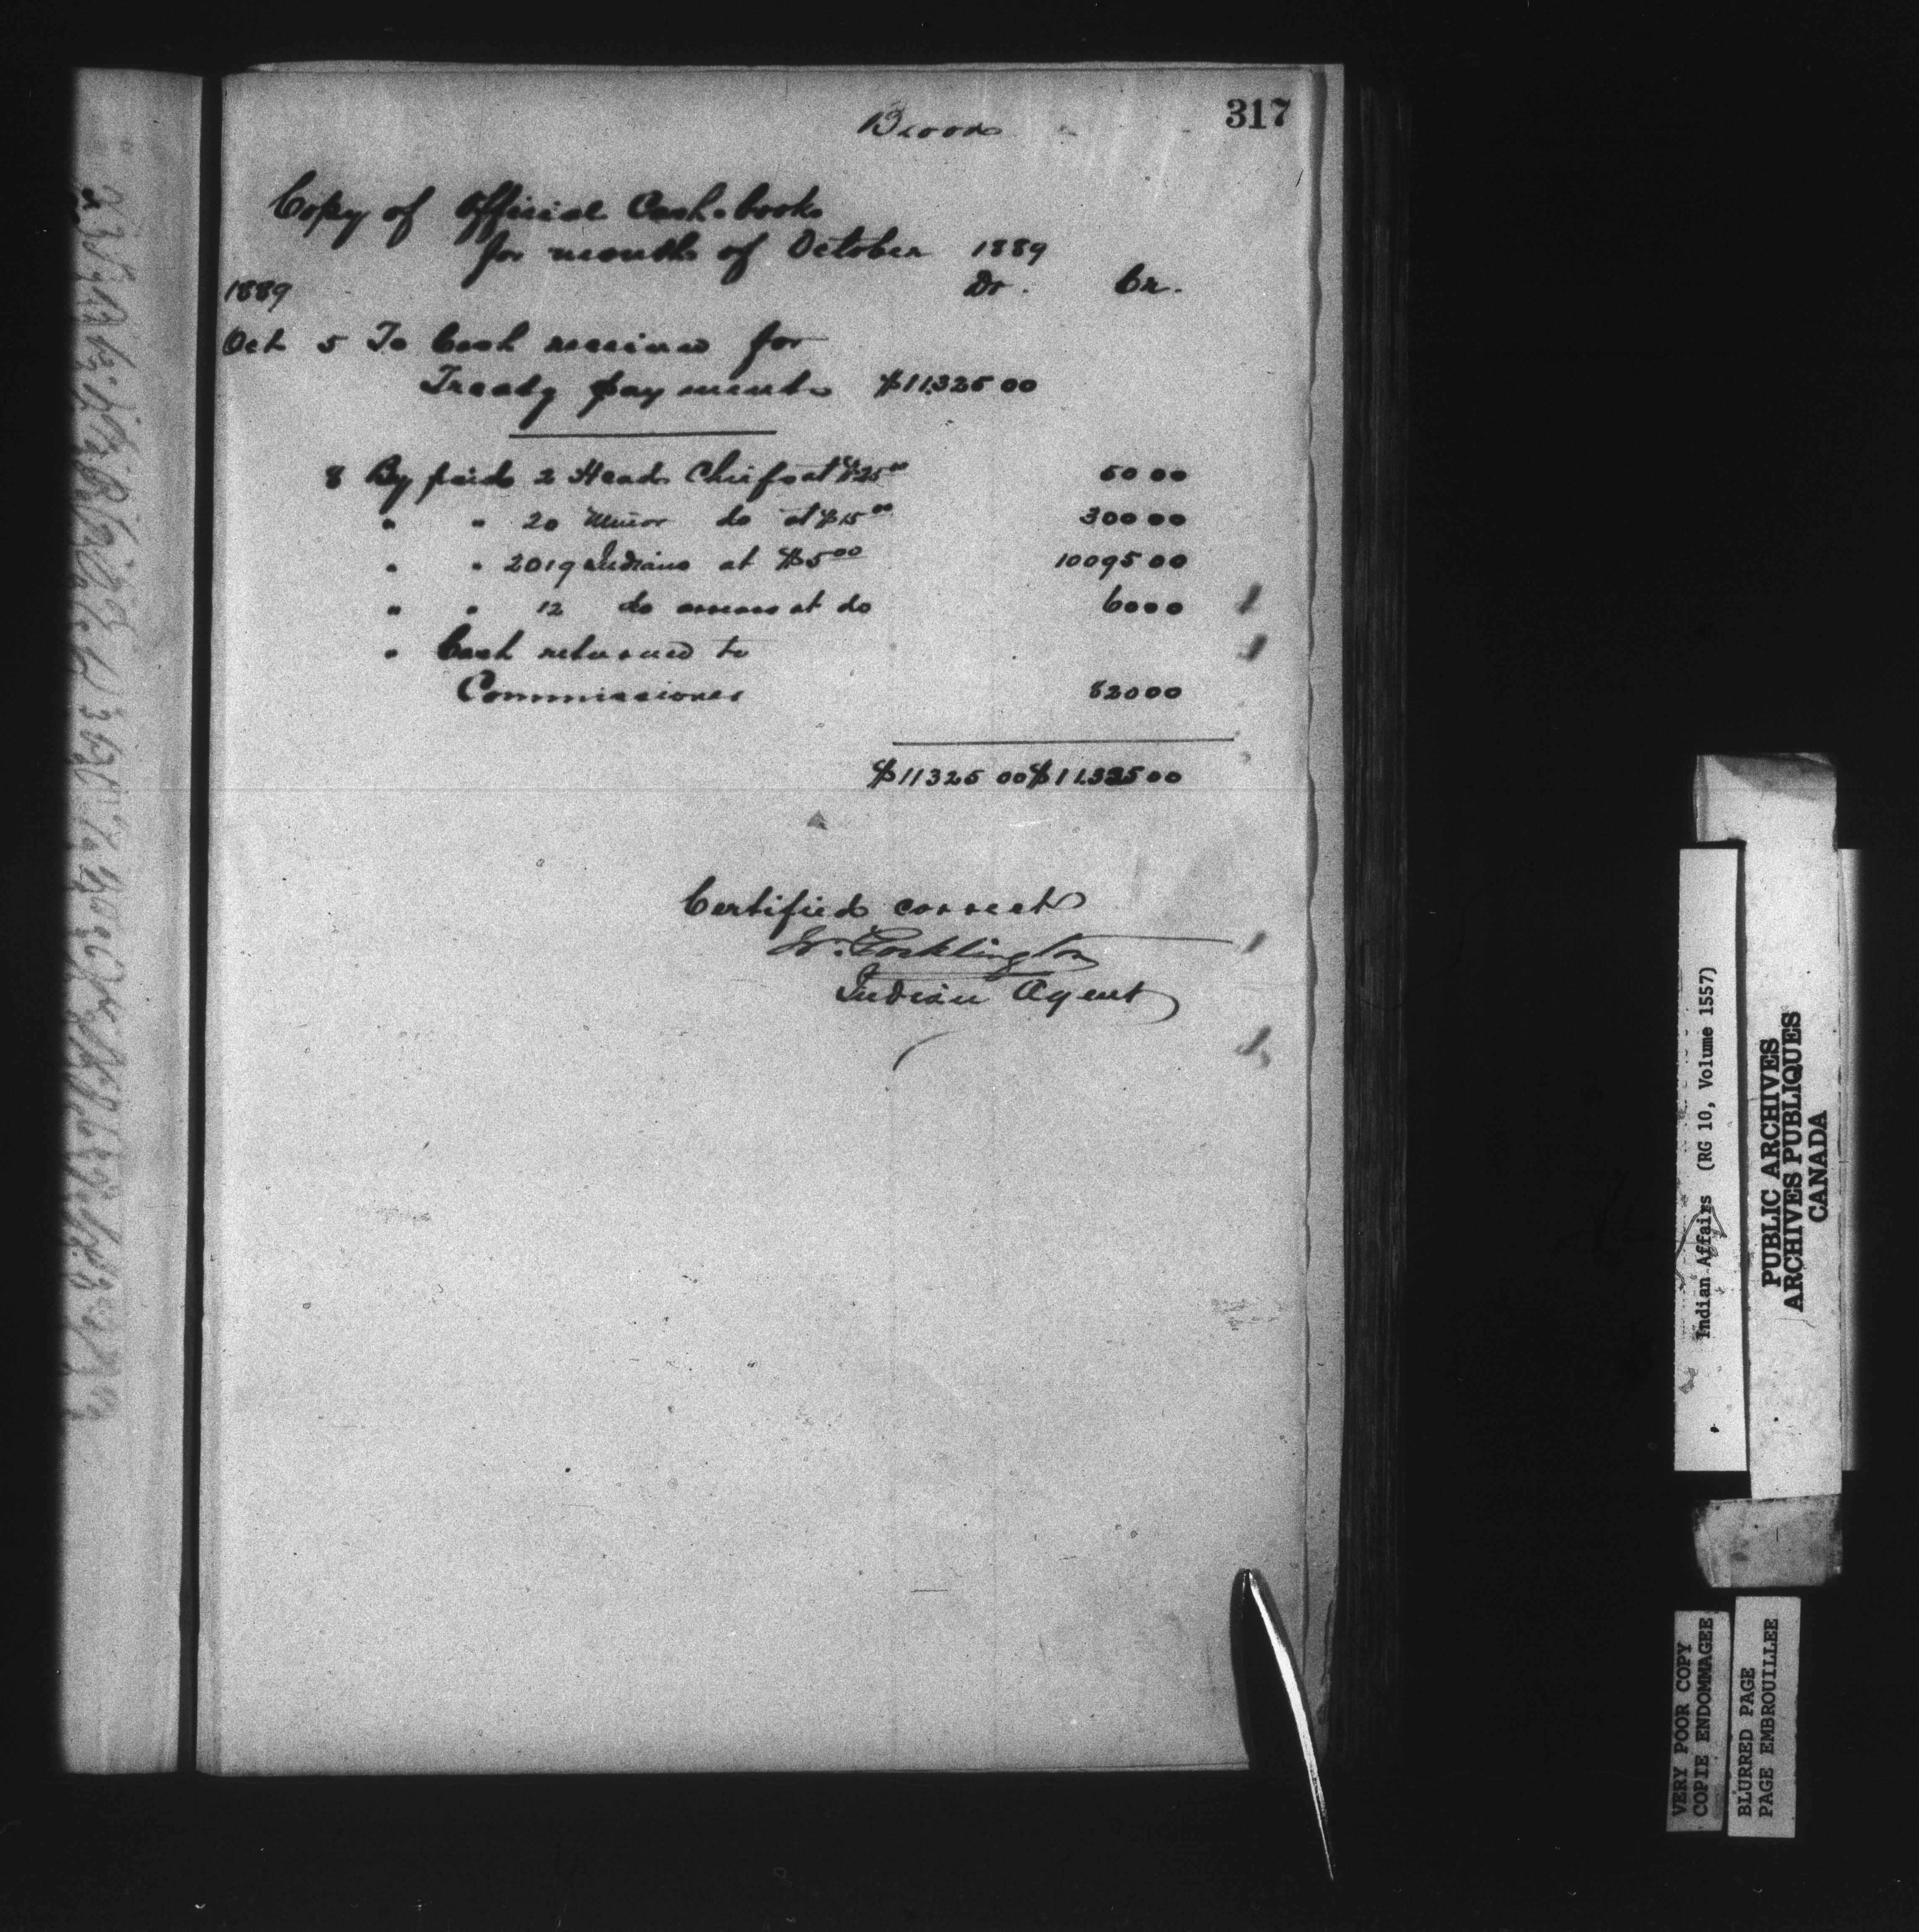 317
Bloods
Copy of Official Cash-book
for month of October 1889
1889 Dr. Cr.
Oct 5 To Cash received for
Treaty payments $11325 00
8 By paid 2 Head Chiefs at $25 00 50 00
" " 20 Minor do at $15 00 300 00
" " 2019 Indians at $5 00 10095 00
" " 12 do arrears at do 60 00
" Cash returned to
Commissioner 820 00
$11325 00 $11325 00
Certified correct
W. Pocklington
Indian Agent
Indian Affairs (RG 10, Volume 1557)
PUBLIC ARCHIVES
ARCHIVES PUBLIQUES
CANADA
VERY POOR COPY
COPIE ENDOMMAGEE
BLURRED PAGE
PAGE EMBROUILLEE